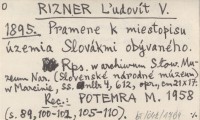 RIZNER Ľudovít V.
1895. Pramene k miestopisu
územia Slovákmi obývaného.
Rps. v archivum Stow. Muzeum Nar. (Slovenské národné múzeum)
w Marcinie, ss. 4, 612, opr., cm 21×17.
Rec.: POTEMRA M. 1958
(s. 89, 100-102, 105-110).